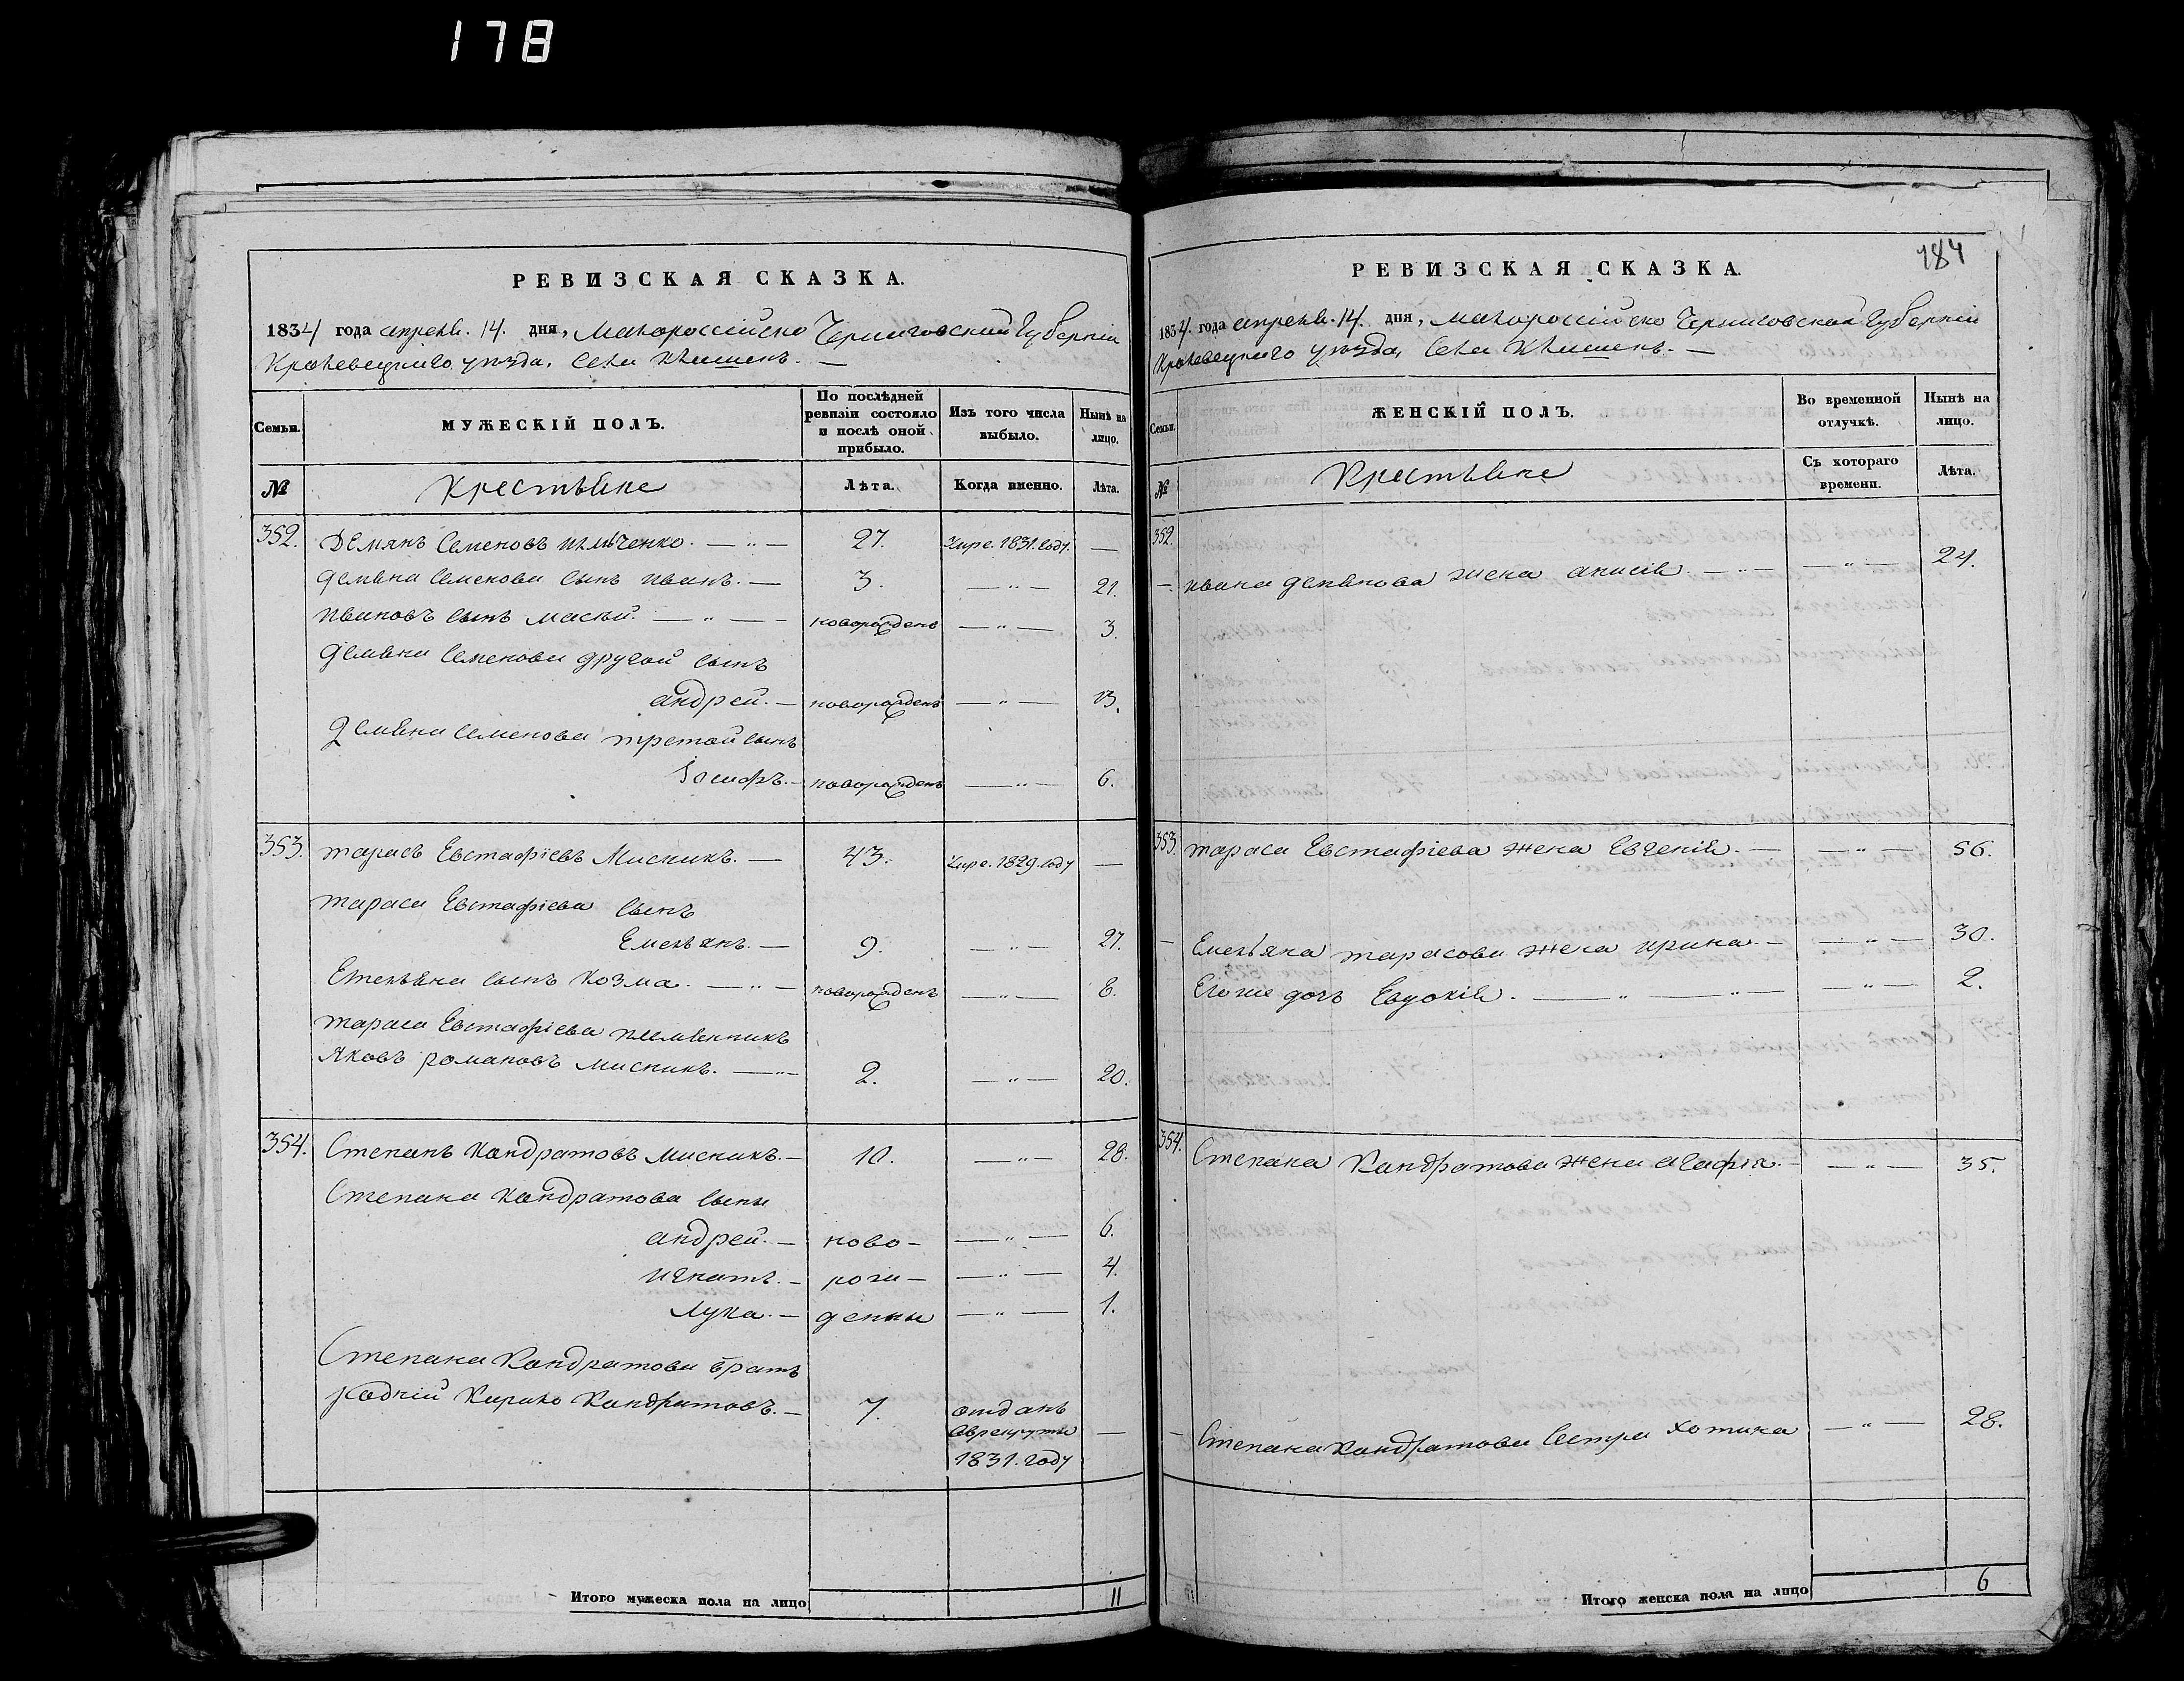 178
РЕВИЗСКАЯ СКАЗКА.
1834 года апреля. 14. дня, Малороссійско Черниговской Губерніи
Кролевецкого уезда, Села Клишекъ. —
Семьи.
МУЖЕСКІЙ ПОЛЪ.
По послѣдней ревизіи состояло и послѣ оной прибыло.
Изъ того числа выбыло.
Нынѣ на лицо.
№
Крестьяне
Лѣта.
Когда именно.
Лѣта.
352. Демянъ Семеновъ 27. Умре. 1831. году. —
Демяна Семенова сынъ иванъ. — 3. — " — 21.
ивановъ сынъ — " — новорожденъ — " — 3.
Демяна Семенова другой сынъ
андрей. — новорожденъ — " — 13.
Демяна Семенова третой сынъ
Іосифъ. — новорожденъ — " — 6.
353. тарасъ Евстафіевъ Мисникъ. — 43. Умре. 1829. году —
тараса Евстафіева сынъ
Емельянъ. — 9. — " — 27.
Емельяна сынъ козма. — " — новорожденъ — " — 8.
тараса Евстафіева племянникъ
яковъ романовъ мисникъ. — " — 2. — " — 20.
354. Степанъ Кондратовъ мисникъ. — 10. — " — 28.
Степана Кондратова сыны
андрей. — ново — — " — 6.
игнатъ. — рож — — " — 4.
лука. — денны — " — 1.
Степана Кондратова братъ
родній Кирило Кондратовъ. — 7. отданъ
врекруты —
1831. году
Итого мужеска пола на лицо 11
184
РЕВИЗСКАЯ СКАЗКА.
1834. года апреля. 14. дня, малороссійско Черниговской Губерніи
Кролевецкого уезда, Села Клишекъ. —
Семьи.
ЖЕНСКІЙ ПОЛЪ.
Во временной отлучкѣ.
Нынѣ на лицо.
№
Крестьяне
Съ котораго времени.
Лѣта.
352.
— ивана демянова жена анисія — " — — " — 24.
353. тараса Евстафіева жена Евгенія. — — " — 56.
— Емельяна тарасова жена ирина. — — " — 30.
Его же дочь Евдокія. — " — " — — " — 2.
354. Степана Кондратова жена агафія. — — " — 35.
— Степана Кондратова сестра хотина — " — 28.
Итого женска пола на лицо 6